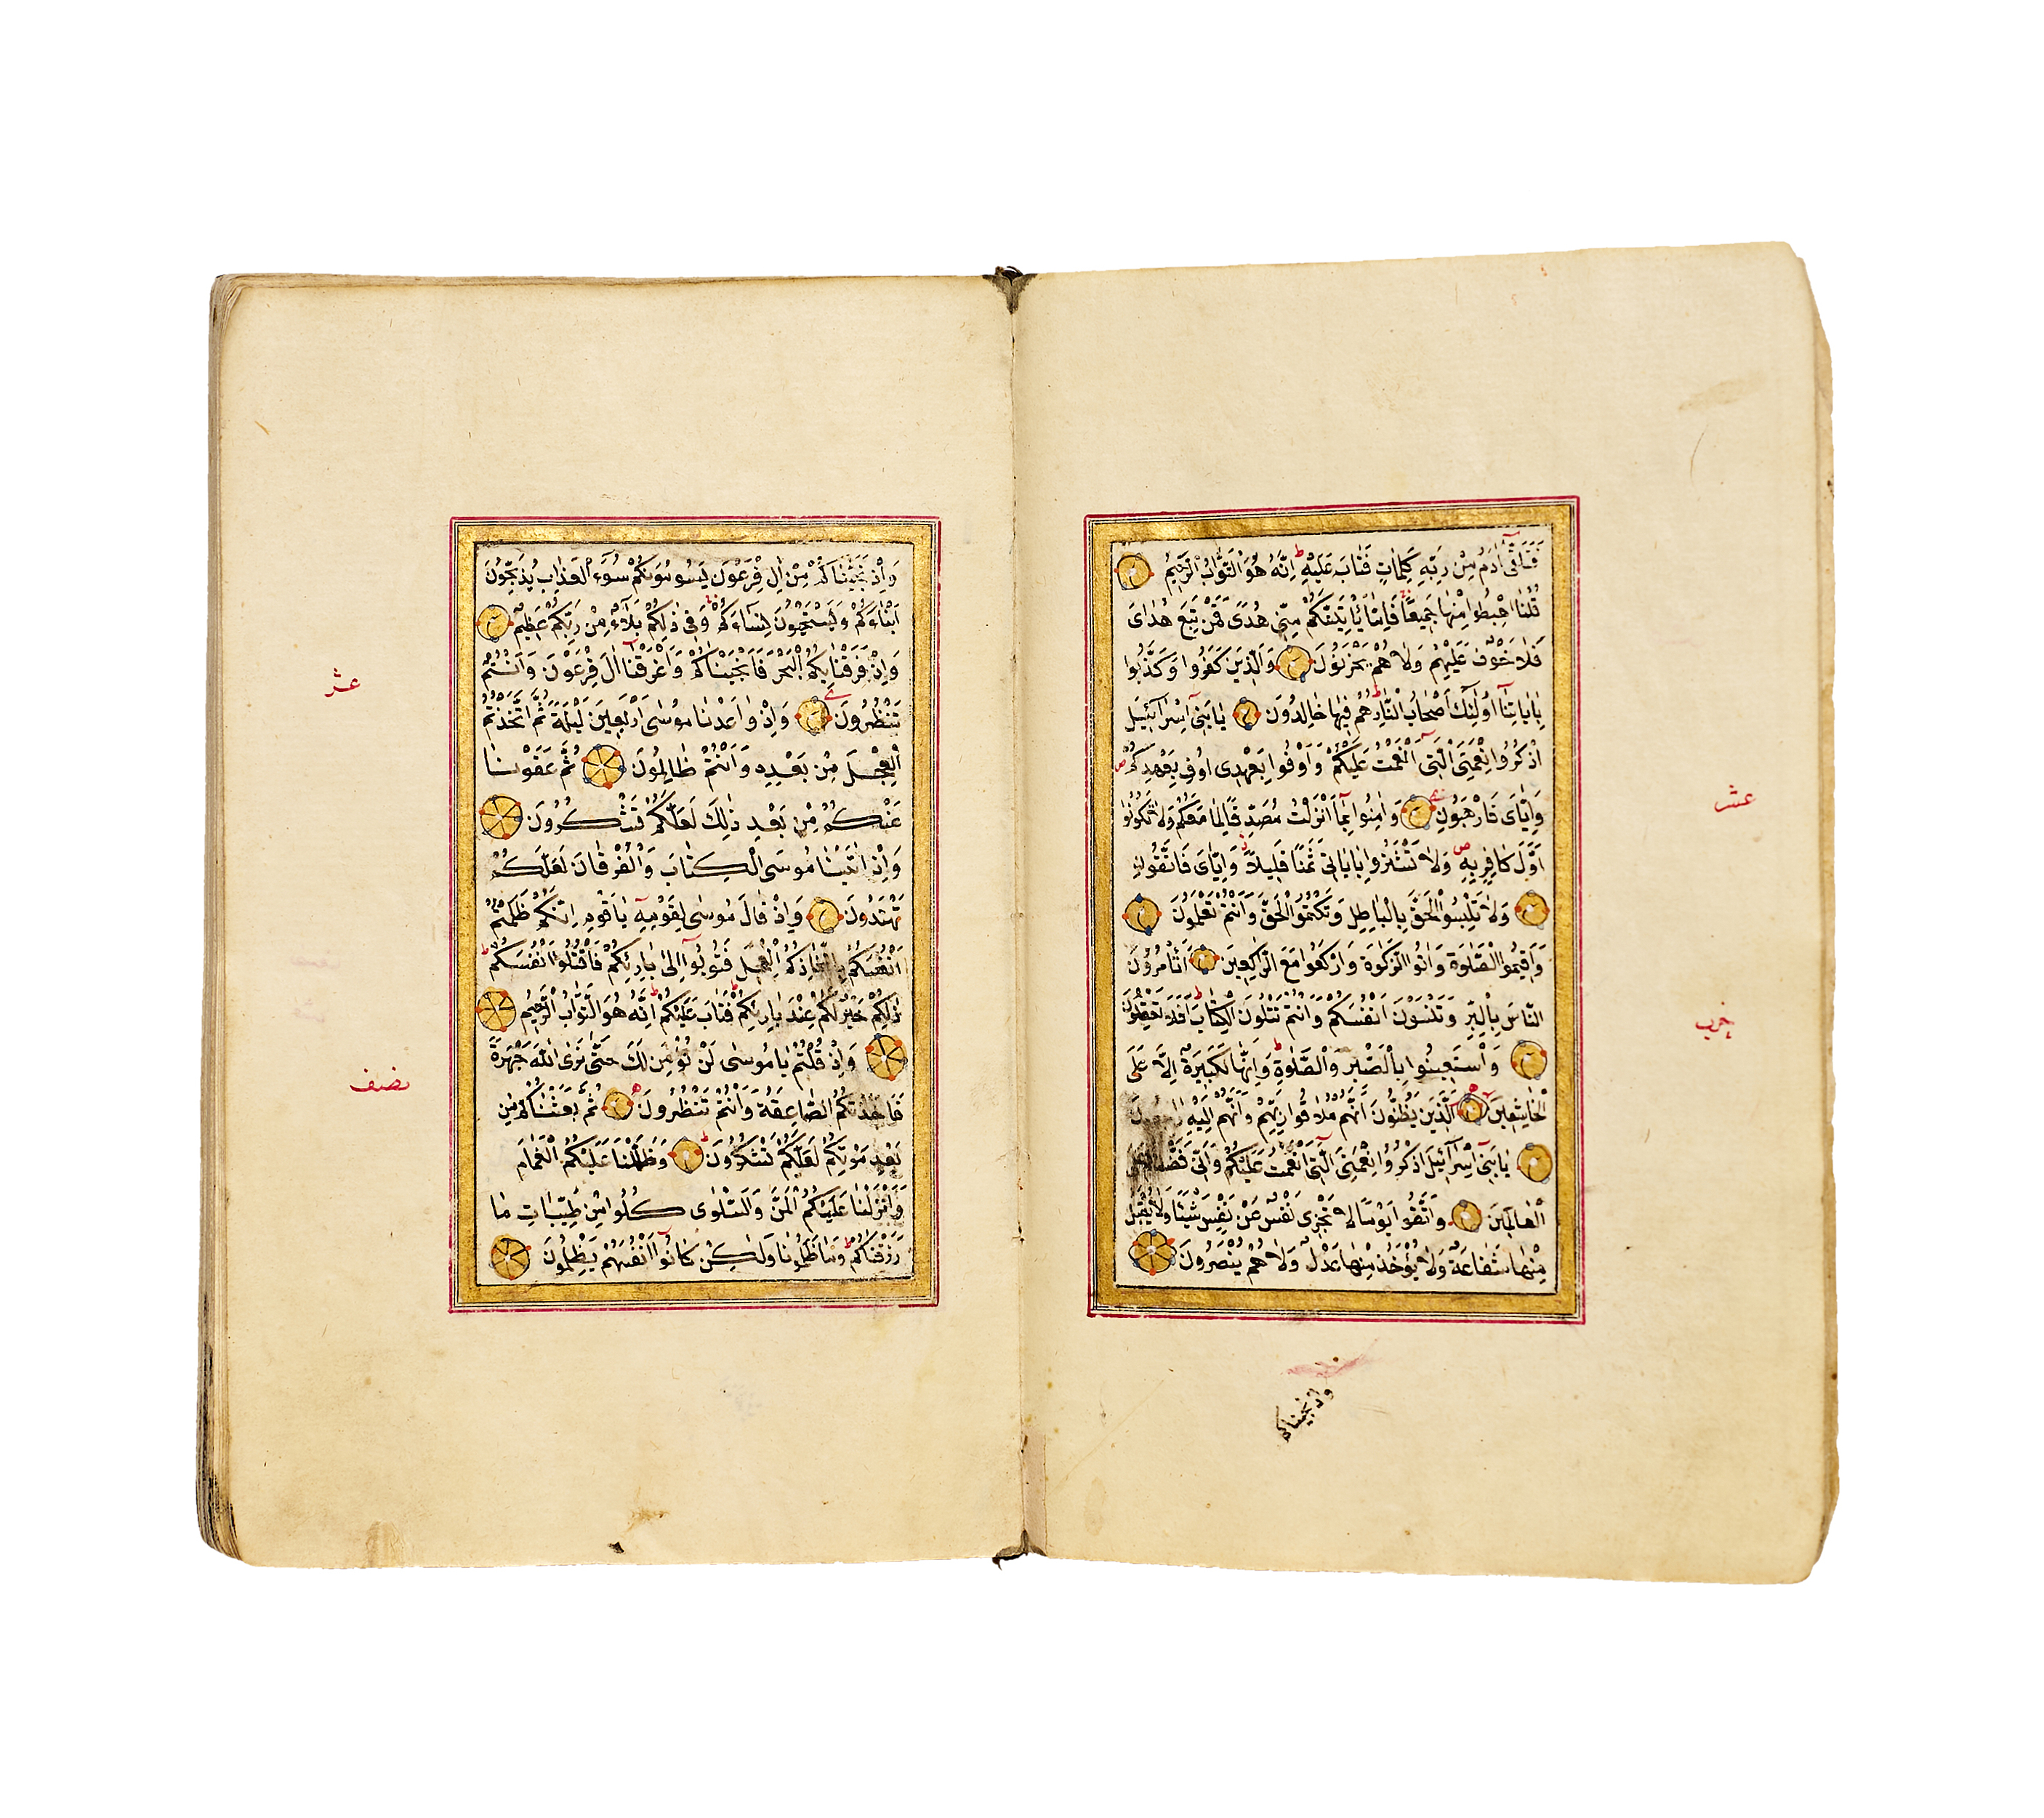 فَتَلَقّٰٓى اٰدَمُ مِنْ رَبِّهِ كَلِمَاتٍ فَتَابَ عَلَيْهِ ط اِنَّهُ هُوَ التَّوَّابُ الرَّحِيمُ
قُلْنَا اهْبِطُوا مِنْهَا جَمِيعًا فَاِمَّا يَأْتِيَنَّكُمْ مِنِّى هُدًى فَمَنْ تَبِعَ هُدَاىَ
فَلَا خَوْفٌ عَلَيْهِمْ وَلَا هُمْ يَحْزَنُونَ وَالَّذِينَ كَفَرُوا وَكَذَّبُوا
بِاٰيَاتِنَٓا اُولٰٓئِكَ اَصْحَابُ النَّارِ هُمْ فِيهَا خَالِدُونَ يَا بَنِٓى اِسْرَٓائِيلَ
اذْكُرُوا نِعْمَتِىَ الَّتِٓى اَنْعَمْتُ عَلَيْكُمْ وَاَوْفُوا بِعَهْدِى اُوفِ بِعَهْدِكُمْ ص
وَاِيَّاىَ فَارْهَبُونِ وَاٰمِنُوا بِمَٓا اَنْزَلْتُ مُصَدِّقًا لِمَا مَعَكُمْ وَلَا تَكُونُوا
اَوَّلَ كَافِرٍ بِهِ ص وَلَا تَشْتَرُوا بِاٰيَاتِى ثَمَنًا قَلِيلًا ز وَاِيَّاىَ فَاتَّقُونِ
وَلَا تَلْبِسُوا الْحَقَّ بِالْبَاطِلِ وَتَكْتُمُوا الْحَقَّ وَاَنْتُمْ تَعْلَمُونَ
وَاَقِيمُوا الصَّلٰوةَ وَاٰتُوا الزَّكٰوةَ وَارْكَعُوا مَعَ الرَّاكِعِينَ اَتَأْمُرُونَ
النَّاسَ بِالْبِرِّ وَتَنْسَوْنَ اَنْفُسَكُمْ وَاَنْتُمْ تَتْلُونَ الْكِتَابَ ط اَفَلَا تَعْقِلُونَ
وَاسْتَعِينُوا بِالصَّبْرِ وَالصَّلٰوةِ ط وَاِنَّهَا لَكَبِيرَةٌ اِلَّا عَلَى
الْخَاشِعِينَ الَّذِينَ يَظُنُّونَ اَنَّهُمْ مُلَاقُوا رَبِّهِمْ وَاَنَّهُمْ اِلَيْهِ
يَا بَنِٓى اِسْرَٓائِيلَ اذْكُرُوا نِعْمَتِىَ الَّتِٓى اَنْعَمْتُ عَلَيْكُمْ وَاَنِّى
الْعَالَمِينَ وَاتَّقُوا يَوْمًا لَا تَجْزِى نَفْسٌ عَنْ نَفْسٍ شَيْئًا وَلَا يُقْبَلُ
مِنْهَا شَفَاعَةٌ وَلَا يُؤْخَذُ مِنْهَا عَدْلٌ وَلَا هُمْ يُنْصَرُونَ
عشر
حزب
واذ نجيناكم
وَاِذْ نَجَّيْنَاكُمْ مِنْ اٰلِ فِرْعَوْنَ يَسُومُونَكُمْ سُوٓءَ الْعَذَابِ يُذَبِّحُونَ
اَبْنَٓاءَكُمْ وَيَسْتَحْيُونَ نِسَٓاءَكُمْ ط وَفِى ذٰلِكُمْ بَلَٓاءٌ مِنْ رَبِّكُمْ عَظِيمٌ
وَاِذْ فَرَقْنَا بِكُمُ الْبَحْرَ فَاَنْجَيْنَاكُمْ وَاَغْرَقْنَٓا اٰلَ فِرْعَوْنَ وَاَنْتُمْ
تَنْظُرُونَ وَاِذْ وَاعَدْنَا مُوسٰى اَرْبَعِينَ لَيْلَةً ثُمَّ اتَّخَذْتُمُ
الْعِجْلَ مِنْ بَعْدِهِ وَاَنْتُمْ ظَالِمُونَ ثُمَّ عَفَوْنَا
عَنْكُمْ مِنْ بَعْدِ ذٰلِكَ لَعَلَّكُمْ تَشْكُرُونَ
وَاِذْ اٰتَيْنَا مُوسَى الْكِتَابَ وَالْفُرْقَانَ لَعَلَّكُمْ
تَهْتَدُونَ وَاِذْ قَالَ مُوسٰى لِقَوْمِهِ يَا قَوْمِ اِنَّكُمْ ظَلَمْتُمْ
اَنْفُسَكُمْ بِاتِّخَاذِكُمُ الْعِجْلَ فَتُوبُٓوا اِلٰى بَارِئِكُمْ فَاقْتُلُٓوا اَنْفُسَكُمْ ط
ذٰلِكُمْ خَيْرٌ لَكُمْ عِنْدَ بَارِئِكُمْ ط فَتَابَ عَلَيْكُمْ ط اِنَّهُ هُوَ التَّوَّابُ الرَّحِيمُ
وَاِذْ قُلْتُمْ يَا مُوسٰى لَنْ نُؤْمِنَ لَكَ حَتّٰى نَرَى اللّٰهَ جَهْرَةً
فَاَخَذَتْكُمُ الصَّاعِقَةُ وَاَنْتُمْ تَنْظُرُونَ ثُمَّ بَعَثْنَاكُمْ مِنْ
بَعْدِ مَوْتِكُمْ لَعَلَّكُمْ تَشْكُرُونَ وَظَلَّلْنَا عَلَيْكُمُ الْغَمَامَ
وَاَنْزَلْنَا عَلَيْكُمُ الْمَنَّ وَالسَّلْوٰى كُلُوا مِنْ طَيِّبَاتِ مَا
رَزَقْنَاكُمْ ط وَمَا ظَلَمُونَا وَلٰكِنْ كَانُٓوا اَنْفُسَهُمْ يَظْلِمُونَ
عشر
نصف